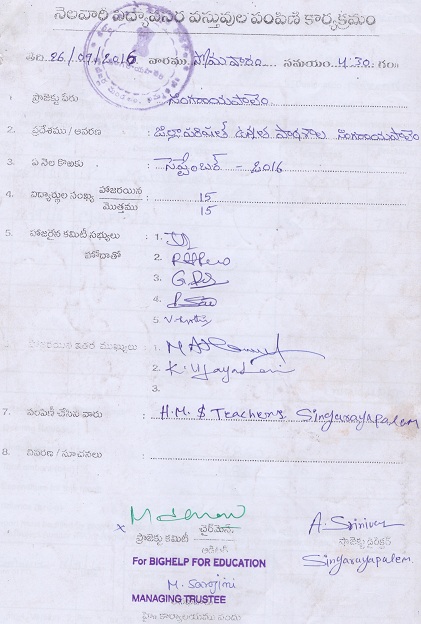 నెలవారి విద్యావసర వస్తువుల పంపిణి కార్యక్రమం
తేది. 26/09/2016 వారము సోమవారం సమయం. 4.30. గం॥
1. ప్రాజెక్టు పేరు : సింగరాయపాలెం
2. ప్రదేశము / ఆవరణ : జిల్లాపరిషత్ ఉన్నత పాఠశాల సింగరాయపాలెం
3. ఏ నెల కొఱకు : సెప్టెంబర్ - 2016
4. విద్యార్థుల సంఖ్య హాజరయిన : 15
మొత్తము 15
5. హాజరైన కమిటీ సభ్యులు : 1.
హోదాతో 2.
3.
4.
5.
హాజరయిన ఇతర ముఖ్యులు : 1.
2. K. Vijaya
3.
7. పంపిణి చేసిన వారు : H.M. & Teachers Singarayapalem
8. వివరణ / సూచనలు :
x ప్రాజెక్టు కమిటీ చైర్మెన్. A. Srinivas
ఆడిటర్ ప్రాజెక్టు డైరెక్టర్
For BIGHELP FOR EDUCATION Singarayapalem.
M. Sarojini
MANAGING TRUSTEE